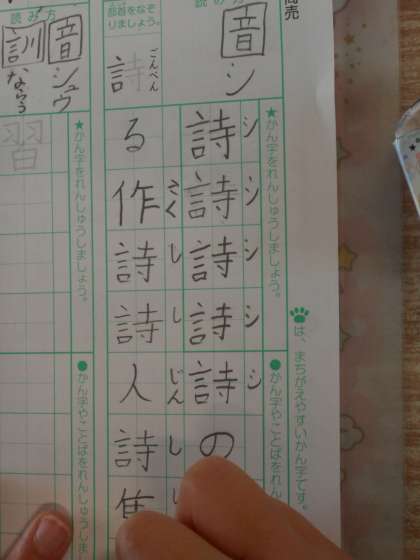 は、まちがえやすいかん字です。
読み方
音 シ
★かん字をれんしゅうしましょう。
●かん字やことばをれん
シ シ シ シ シ
詩詩詩詩詩の
さく し し じん し
る作詩詩人詩
部首をなぞりましょう。
ごんべん
詩
★かん字をれんしゅうしましょう。
●かん字やことばをれんしゅうしま
読み方
音 シュウ
訓 ならう
習